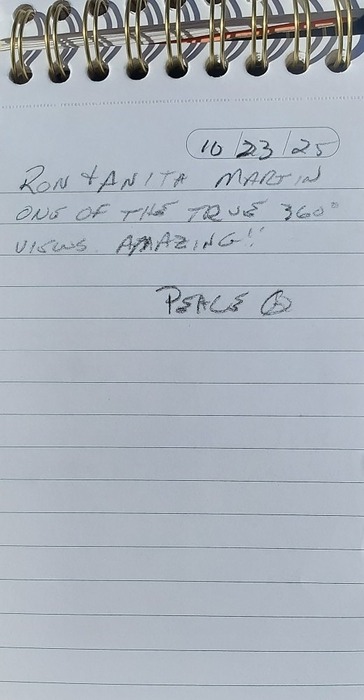 10/23/25
RON & ANITA MARTIN
ONE OF THE TRUE 360°
VIEWS. AMAZING!!
PEACE ☮